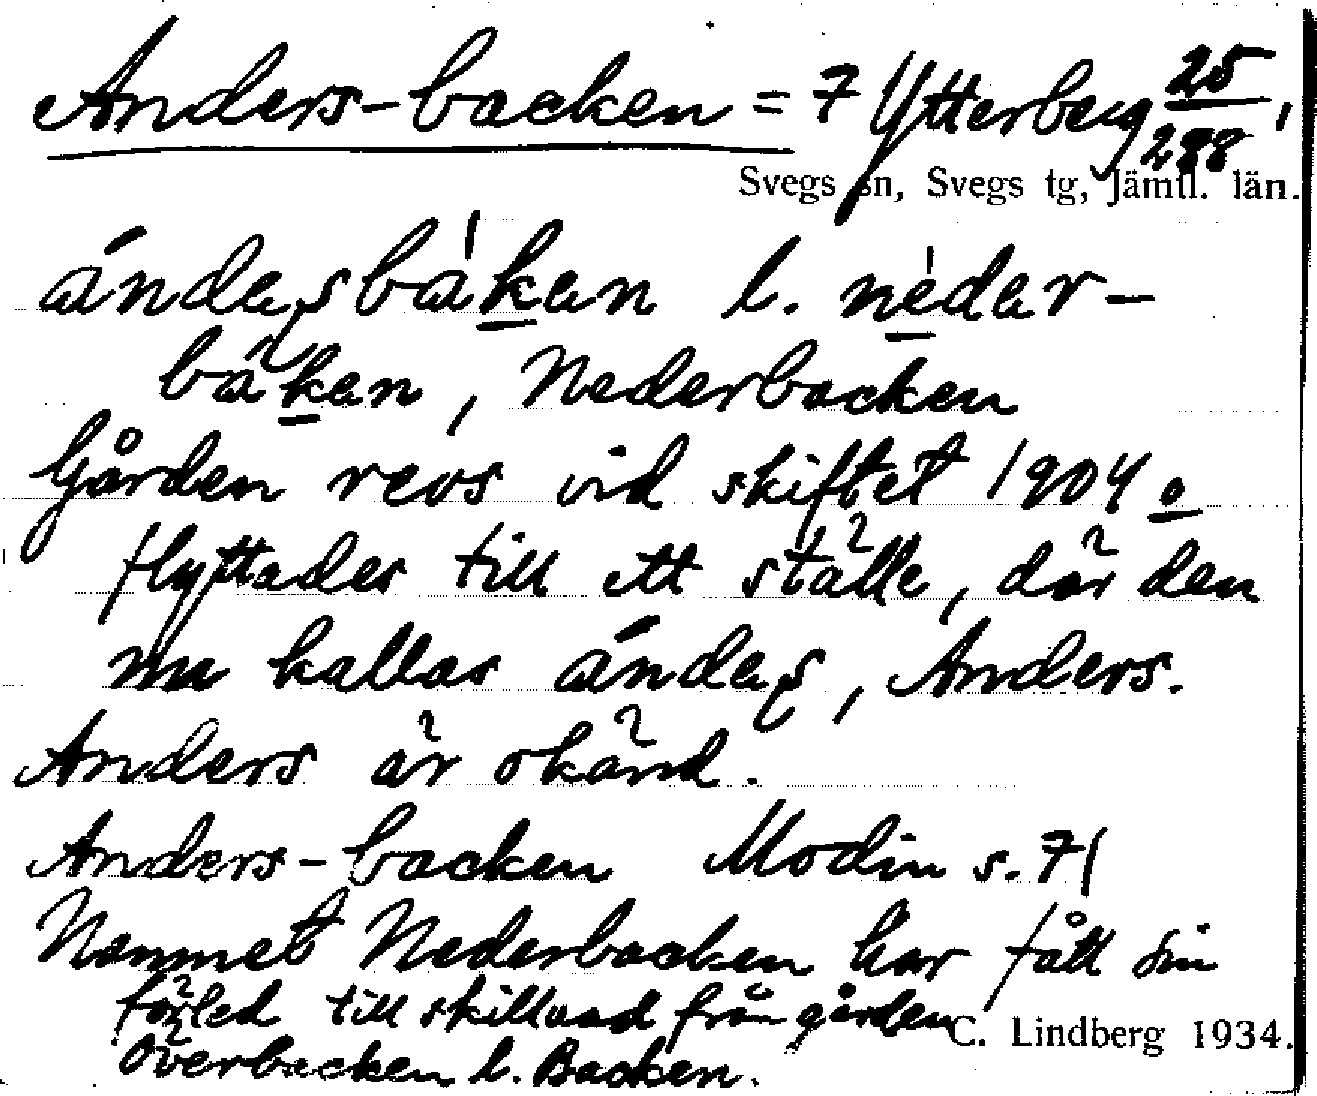 Anders-backen = 7 Ytterberg 25/288,
Svegs sn, Svegs tg, Jämtl. län.
ándaʂbàkan l. nèdar-
bákan, Nederbacken
Gården revs vid skiftet 1904 o
flyttades till ett ställe, där den
nu kallas ándaʂ, Anders.
Anders är okänd.
Anders-backen Modin s. 71
Namnet Nederbacken har fått sin
förled till skillnad från gården
Överbacken l. Backen.
C. Lindberg 1934.